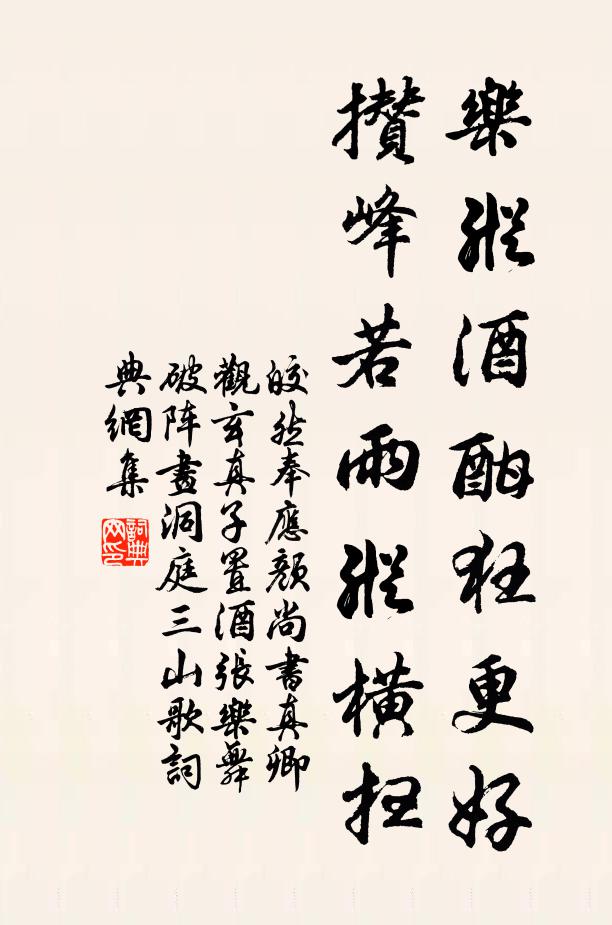 樂縱酒酣狂更好
攢峰若雨縱橫扫
皎然奉應顏尚書真卿
觀玄真子置酒張樂舞
破阵畫洞庭三山歌詞
典網集
詞典
网印